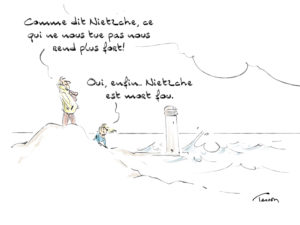 Comme dit Nietzche, ce
qui ne nous tue pas nous
rend plus fort!
Oui, enfin. Nietzche
est mort fou.